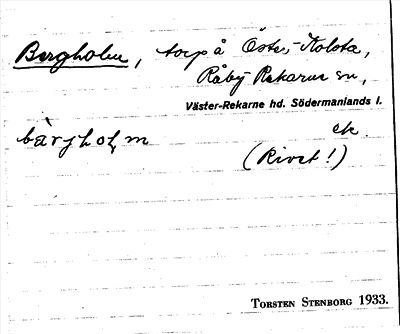 Bergholm, torp å Öster-Kolsta,
Råby-Rekarne sn,
Väster-Rekarne hd. Södermanlands l.
bàrjhoɫm ek.
(Rivet!)
TORSTEN STENBORG 1933.